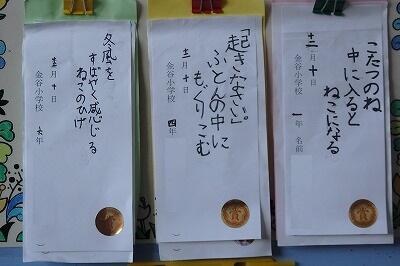 こたつのね
中に入ると
ねこになる
十二月十日
金谷小学校 一年 名前
「起きなさい」。
ふとんの中に
もぐりこむ
十二月十日
金谷小学校 四年
冬風を
すばやく感じる
ねこのひげ
十二月十日
金谷小学校 六年